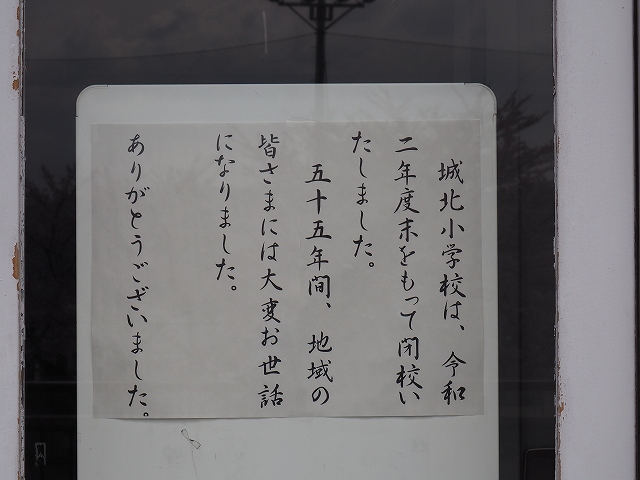 城北小学校は、令和
二年度末をもって閉校い
たしました。
五十五年間、地域の
皆さまには大変お世話
になりました。
ありがとうございました。